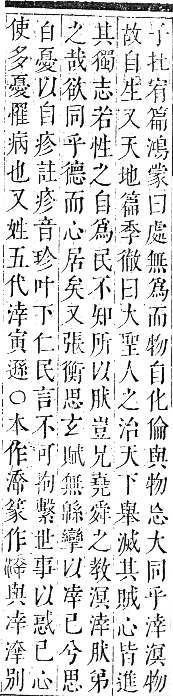 子在宥篇鴻蒙曰處無爲而物自化倫與物忘大同乎涬溟物
故自生又天地篇季徹曰大聖人之治天下舉滅其賊心皆進
其獨志若性之自爲民不知所以肰豈兄堯舜之教溟涬肰弟
之哉欲同乎德而心居矣又張衡思玄賦無緜攣以涬己兮思
百憂以自疹註疹音珍叶下仁民言不可拘繫世事以惑己心
使多憂懼病也又姓五代涬寅遜○本作𣶏篆作與涬滓別